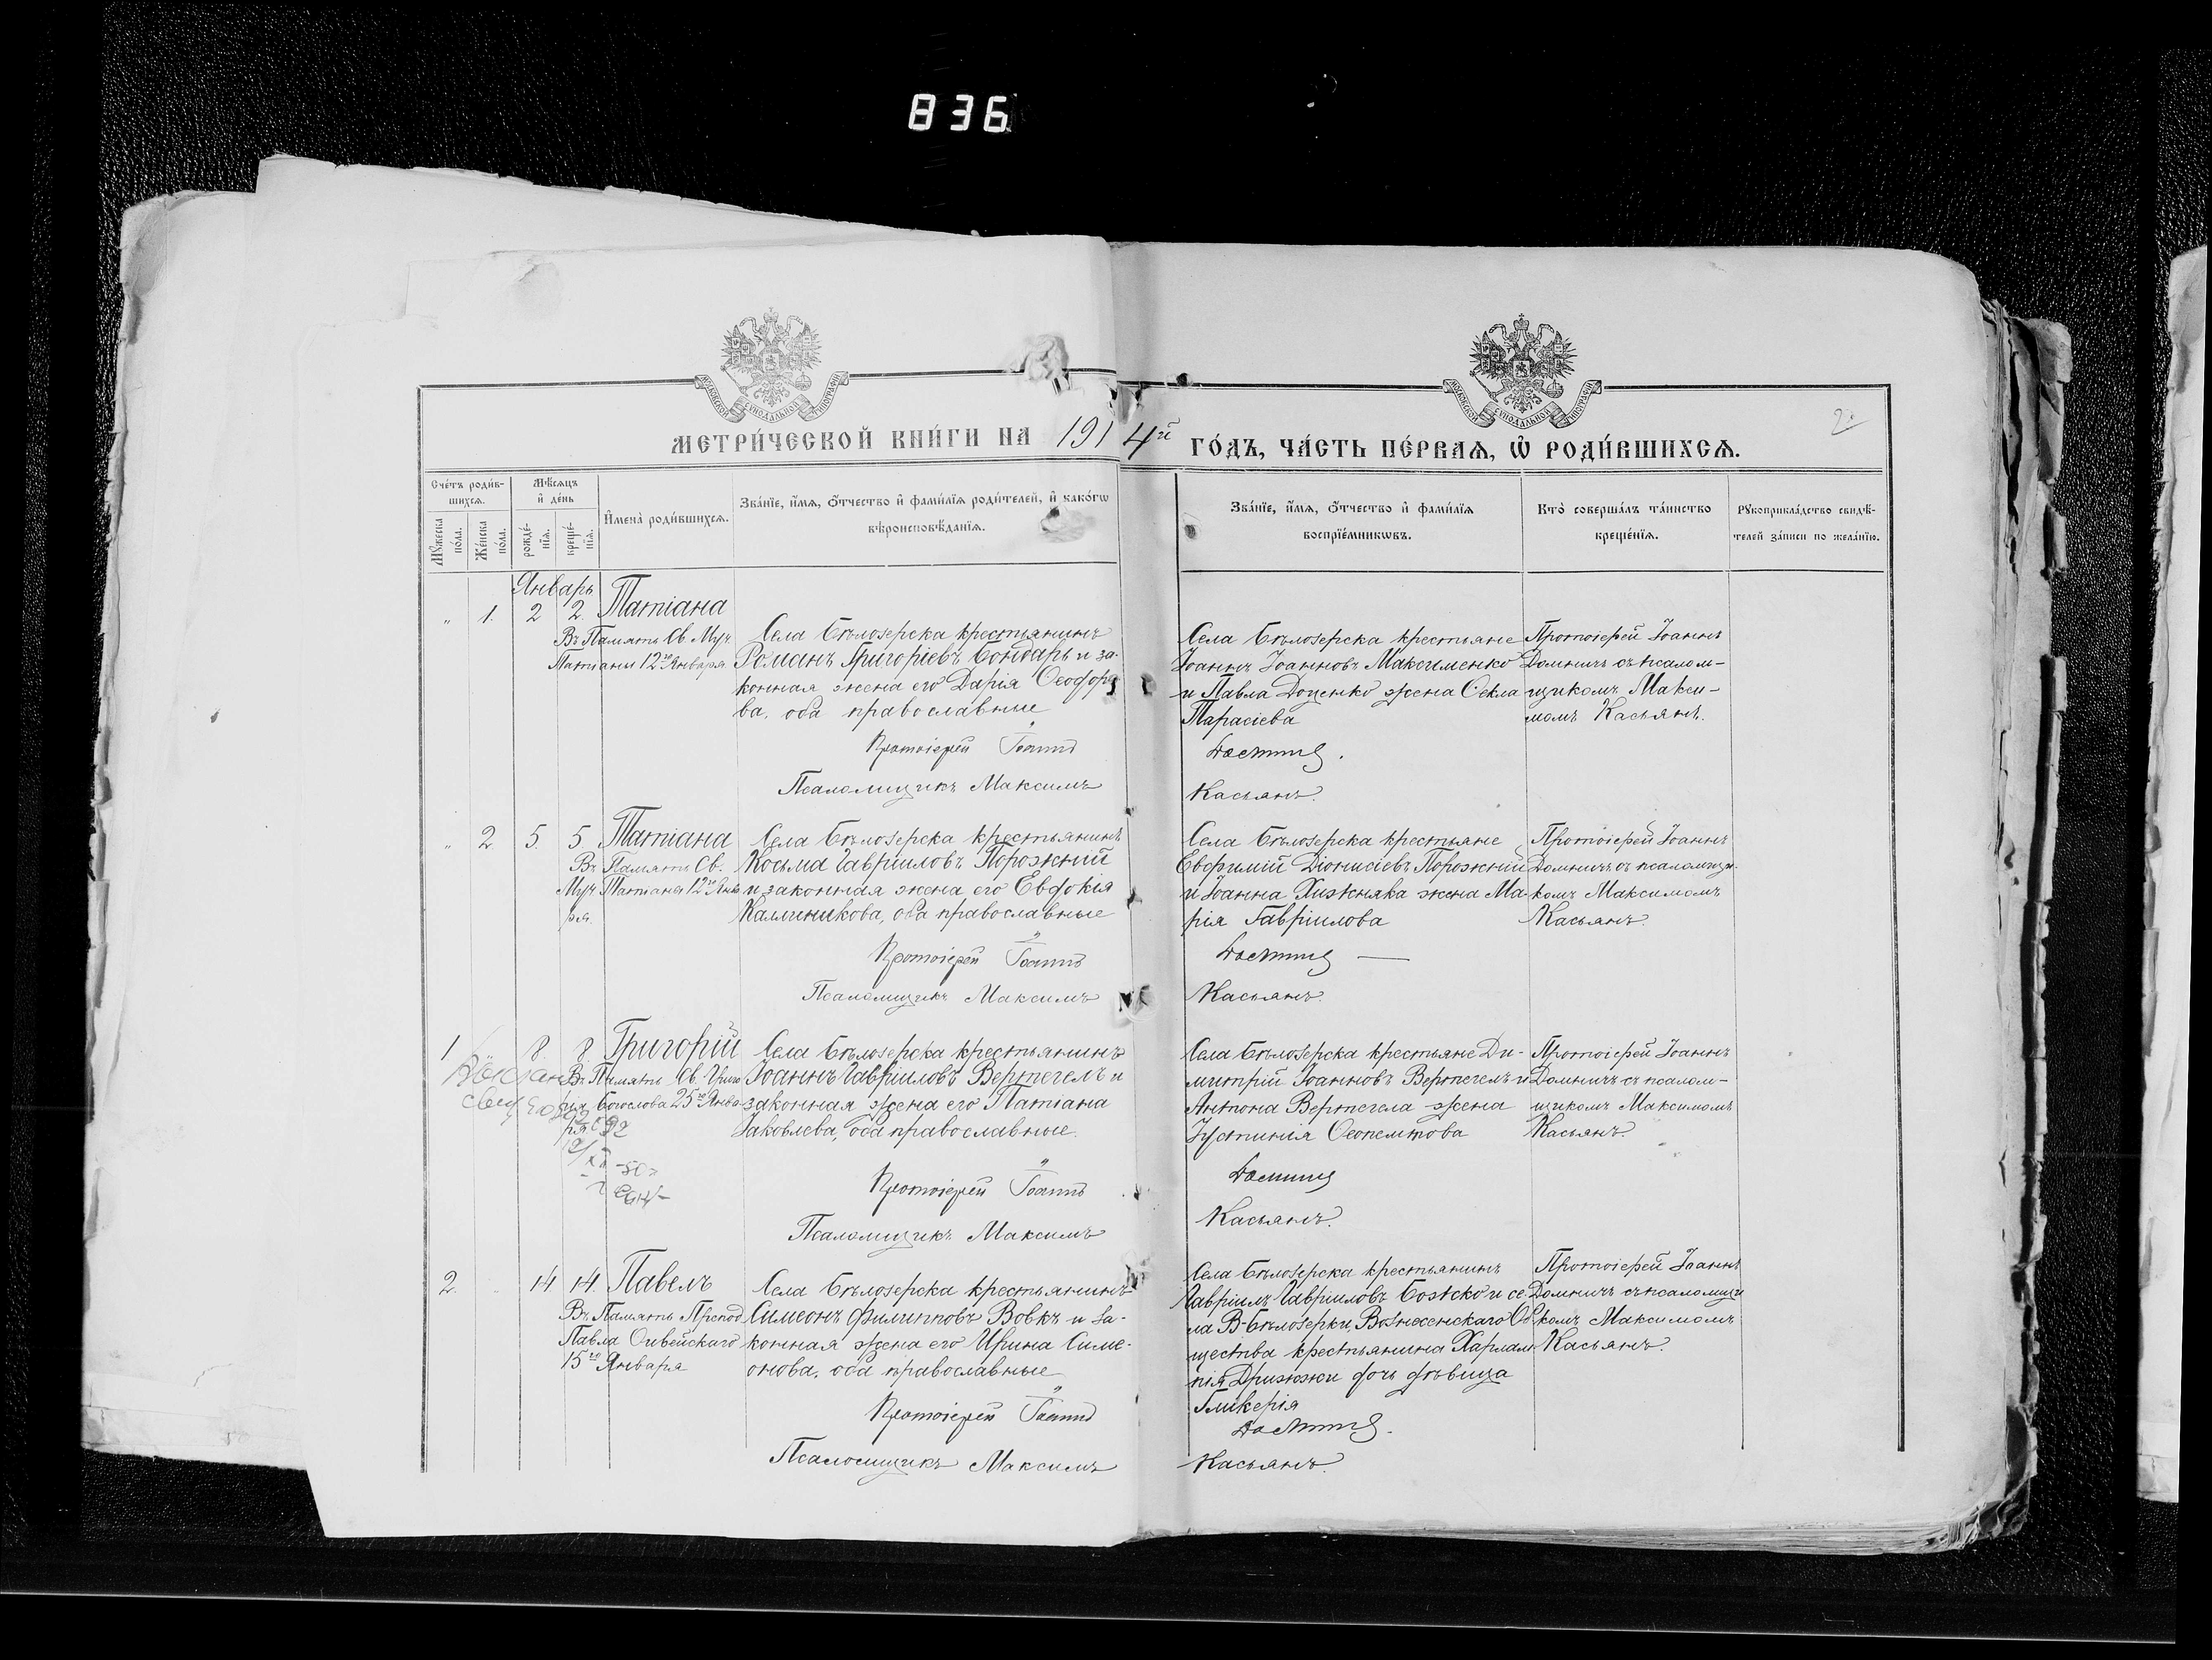 836
МОСКОВСКОЙ СѴНОДАЛЬНОЙ ТИПОГРАФІИ
МОСКОВСКОЙ СѴНОДАЛЬНОЙ ТИПОГРАФІИ
2
МЕТРИ́ЧЕСКОЙ КНИ́ГИ НА 1914й ГО́ДЪ, ЧА́СТЬ ПЕ́РВАѦ, Ѽ РОДИ́ВШИХСѦ.
Сче́тъ роди́вшихсѧ.
Мꙋ́жеска по́ла.
Же́нска по́ла.
Мѣ́сѧцъ и҆ де́нь
рожде́нїѧ.
креще́нїѧ.
И҆мена̀ роди́вшихсѧ.
Зва́нїе, и҆́мѧ, ѻ҆́тчество и҆ фами́лїѧ роди́телей, и҆ како́гѡ
вѣроисповѣ́данїѧ.
Зва́нїе, и҆́мѧ, ѻ҆́тчество и҆ фами́лїѧ
воспрїе́мникѡвъ.
Кто̀ соверша́лъ та́инство
креще́нїѧ.
Рꙋкоприкла́дство свидѣ́телей за́писи по жела́нїю.
Январь
" 1. 2 2. Татіана
Въ Память Св. Муч.
Татіаны 12го Января
Села Бѣлозерска крестьянинъ
Романъ Григоріевъ Бондарь и за-
конная жена его Дарія Ѳеодоро
ва, оба православные
Протоіерей Іоаннъ
Псаломщикъ Максимъ
Села Бѣлозерска крестьяне
Іоаннъ Іоанновъ Максименко
и Павла Доценко жена Ѳекла
Тарасіева
Домничъ.
Касьянъ.
Протоіерей Іоаннъ
Домничъ съ псалом-
щикомъ Макси-
момъ Касьянъ.
" 2 5. 5 Татіана
Въ Память Св.
Муч. Татіаны 12го Янва
ря.
Села Бѣлозерска крестьянинъ
Косьма Гавріиловъ Порожній
и законная жена его Евдокія
Калиникова, оба православные
Протоіерей Іоаннъ
Псаломщикъ Максимъ
Села Бѣлозерска крестьяне
Евфимій Діонисіевъ Порожній
и Іоанна Хижняка жена Ма-
рія Гавріилова
Домничъ
Касьянъ.
Протоіерей Іоаннъ
Домничъ съ псаломщи-
комъ Максимомъ
Касьянъ.
1 8. 8. Григорій
Въ Память Св. Григо
рія Богослова 25го Янва
ря
Села Бѣлозерска крестьянинъ
Іоаннъ Гавріиловъ Вертегелъ и
законная жена его Татіана
Іаковлева, оба православные.
Протоіерей Іоаннъ
Псаломщикъ Максимъ
Села Бѣлозерска крестьяне Ди-
митрій Іоанновъ Вертегелъ и
Антона Вертегела жена
Іустинія Ѳеопемптова
Домничъ
Касьянъ.
Протоіерей Іоаннъ
Домничъ съ псалом-
щикомъ Максимомъ
Касьянъ.
2. 14 14. Павелъ
Въ Память Препод.
Павла Ѳивейскаго
15го Января
Села Бѣлозерска крестьянинъ
Симеонъ Филипповъ Вовкъ и за-
конная жена его Ирина Симе-
онова, оба православные
Протоіерей Іоаннъ
Псаломщикъ Максимъ
Села Бѣлозерска крестьянинъ
Гавріилъ Гавріиловъ и се
ла В-Бѣлозерки, Вознесенскаго Об
щества крестьянина Харлам
пія дочь дѣвица
Гликерія
Домничъ.
Касьянъ.
Протоіерей Іоаннъ
Домничъ съ псаломщи
комъ Максимомъ
Касьянъ.